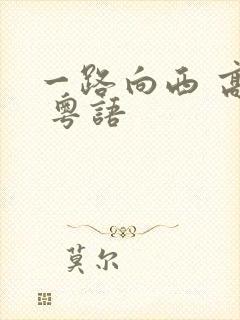 一路向西 高
粵語
莫尔